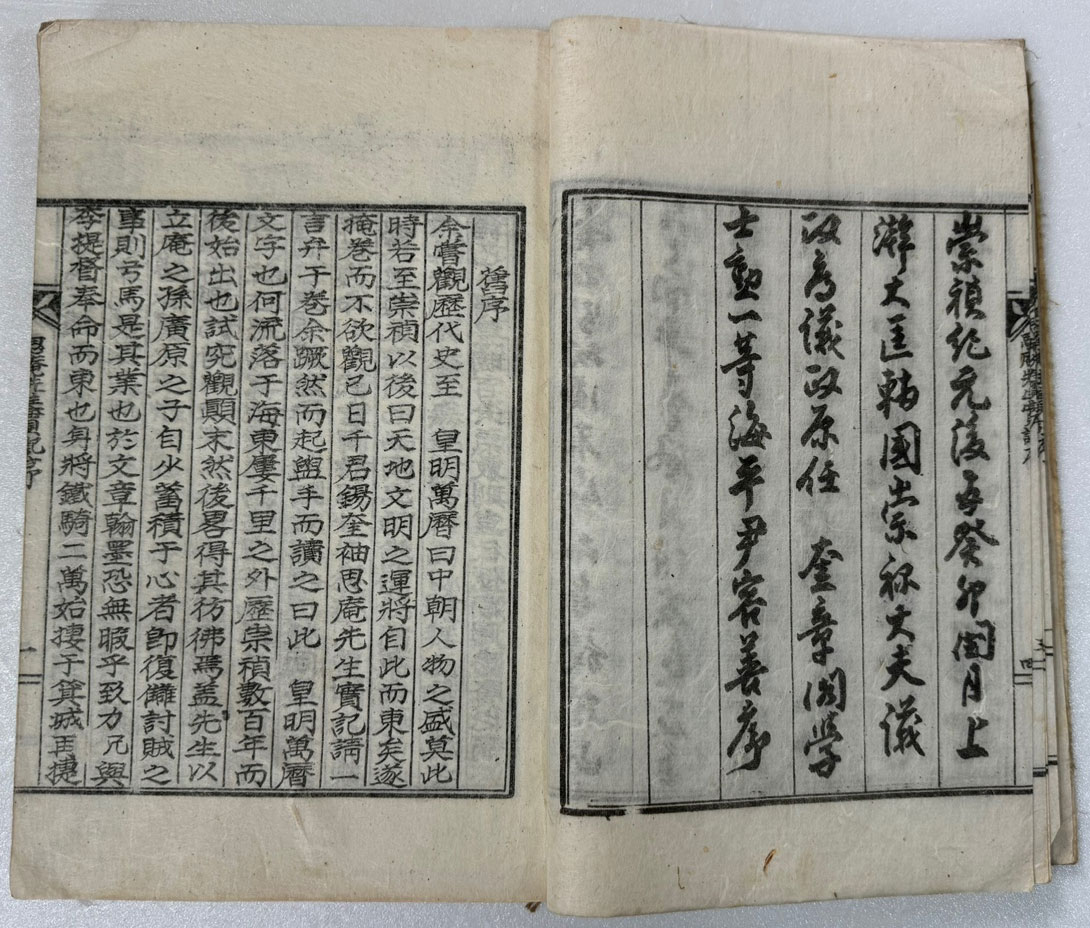 崇禎紀元後五癸卯閏月上
澣大匡輔國崇祿大夫議
政府議政原任 奎章閣學
士勳一等海平尹容善序
舊序
余嘗觀歷代史至 皇明萬曆曰中朝人物之盛莫此
時若至崇禎以後曰天地文明之運將自此而東矣遂
掩卷而不欲觀已日千君錫奎袖思庵先生實記請一
言弁于卷余蹶然而起盥手而讀之曰此 皇明萬曆
文字也何流落于海東屢千里之外歷崇禎數百年而
後始出也試究觀顚末然後畧得其彷彿焉盖先生以
立庵之孫廣原之子自少蓄積于心者卽復讎討賊之
事則弓馬是其業也於文章翰墨恐無暇乎致力凡與
李提督奉命而東也身將鐵騎二萬始摟于箕城再捷
思庵先生實記舊序
一
四